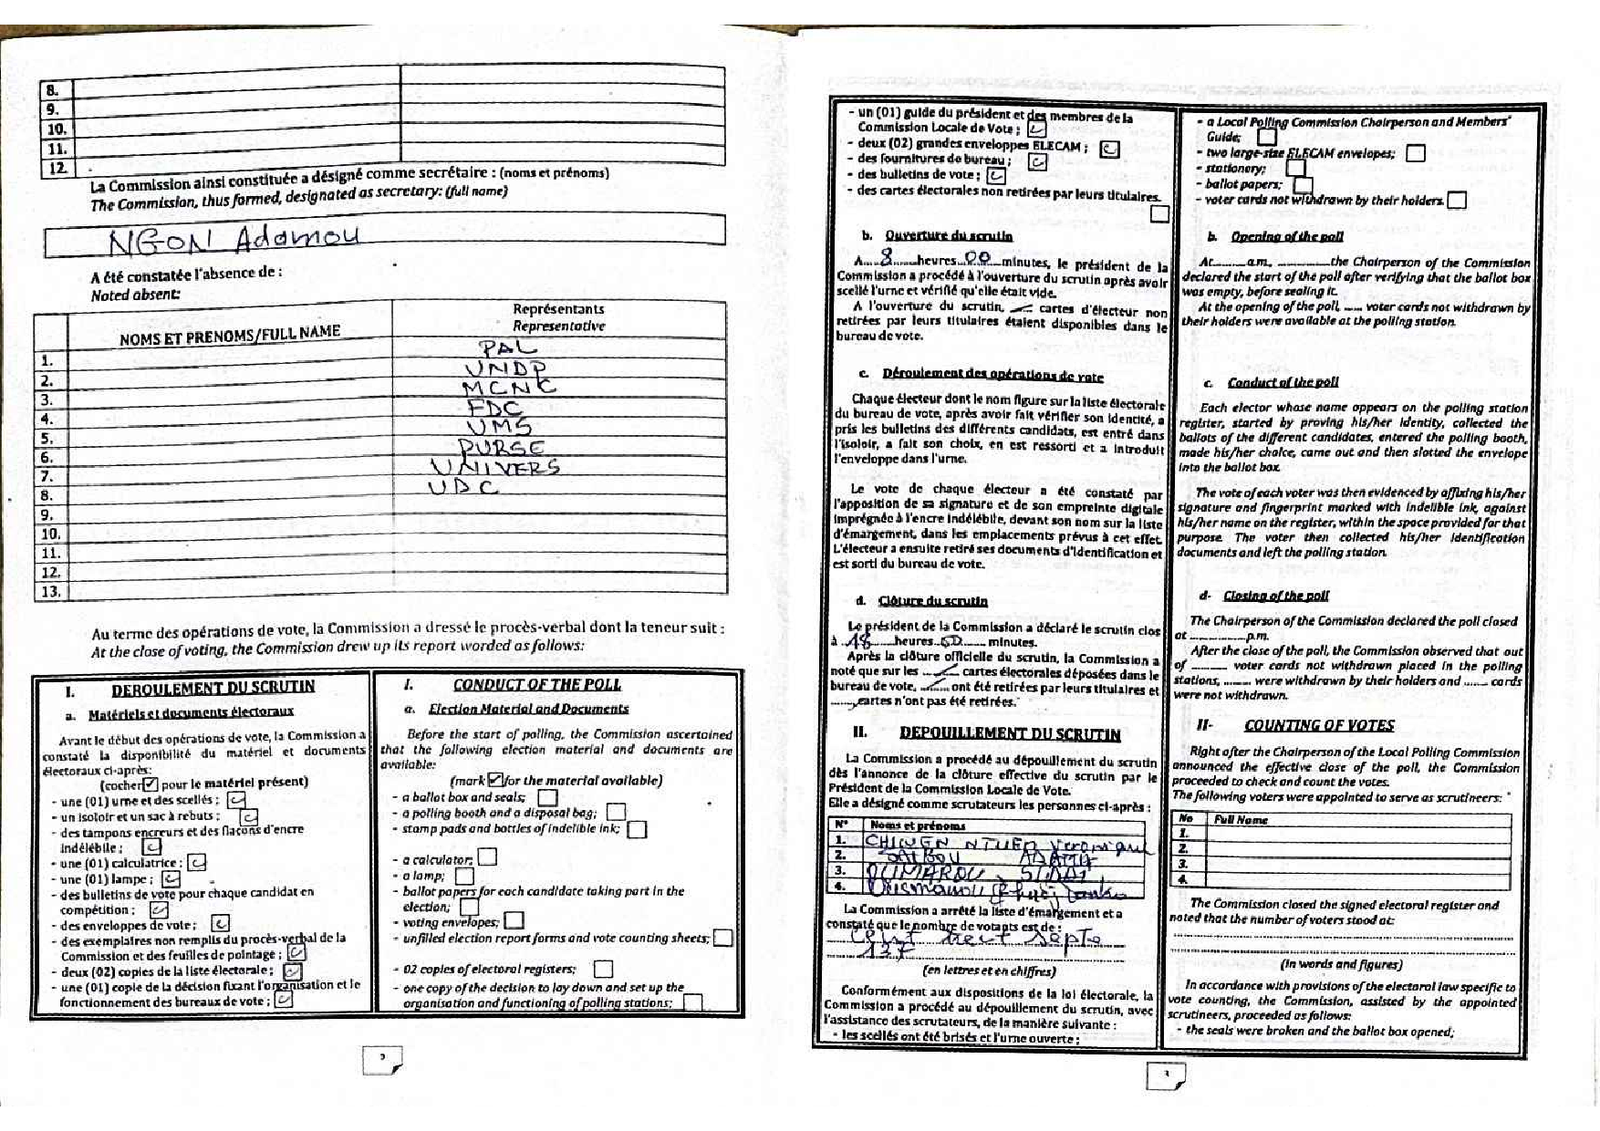 8.
9.
10.
11.
12.
La Commission ainsi constituée a désigné comme secrétaire : (noms et prénoms)
The Commission, thus formed, designated as secretary: (full name)
NGON Adamou
A été constatée l'absence de :
Noted absent:
NOMS ET PRENOMS/FULL NAME
Représentants
Representative
1. PAL
2. UNDP
3. MCNC
4. FDC
5. UMS
6. PURSE
7. UNIVERS
8. UDC
9.
10.
11.
12.
13.
Au terme des opérations de vote, la Commission a dressé le procès-verbal dont la teneur suit :
At the close of voting, the Commission drew up its report worded as follows:
I. DEROULEMENT DU SCRUTIN
a. Matériels et documents électoraux
Avant le début des opérations de vote, la Commission a
constaté la disponibilité du matériel et documents
électoraux ci-après:
(cocher ☑ pour le matériel présent)
- une (01) urne et des scellés ;
- un isoloir et un sac à rebuts :
- des tampons encreurs et des flacons d'encre
indélébile ;
- une (01) calculatrice :
- une (01) lampe ;
- des bulletins de vote pour chaque candidat en
compétition ;
- des enveloppes de vote ;
- des exemplaires non remplis du procès-verbal de la
Commission et des feuilles de pointage ;
- deux (02) copies de la liste électorale ;
- une (01) copie de la décision fixant l'organisation et le
fonctionnement des bureaux de vote ;
I. CONDUCT OF THE POLL
a. Election Material and Documents
Before the start of polling, the Commission ascertained
that the following election material and documents are
available:
(mark ☑ for the material available)
- a ballot box and seals;
- a polling booth and a disposal bag;
- stamp pads and bottles of indelible ink;
- a calculator;
- a lamp;
- ballot papers for each candidate taking part in the
election;
- voting envelopes;
- unfilled election report forms and vote counting sheets;
- 02 copies of electoral registers;
- one copy of the decision to lay down and set up the
organisation and functioning of polling stations;
- un (01) guide du président et des membres de la
Commission Locale de Vote ;
- deux (02) grandes enveloppes ELECAM ;
- des fournitures de bureau ;
- des bulletins de vote ;
- des cartes électorales non retirées par leurs titulaires.
b. Ouverture du scrutin
A 8 heures 00 minutes, le président de la
Commission a procédé à l'ouverture du scrutin après avoir
scellé l'urne et vérifié qu'elle était vide.
A l'ouverture du scrutin, cartes d'électeur non
retirées par leurs titulaires étaient disponibles dans le
bureau de vote.
c. Déroulement des opérations de vote
Chaque électeur dont le nom figure sur la liste électorale
du bureau de vote, après avoir fait vérifier son identité, a
pris les bulletins des différents candidats, est entré dans
l'isoloir, a fait son choix, en est ressorti et a introduit
l'enveloppe dans l'urne.
Le vote de chaque électeur a été constaté par
l'apposition de sa signature et de son empreinte digitale
imprégnée à l'encre indélébile, devant son nom sur la liste
d'émargement, dans les emplacements prévus à cet effet.
L'électeur a ensuite retiré ses documents d'identification et
est sorti du bureau de vote.
d. Clôture du scrutin
Le président de la Commission a déclaré le scrutin clos
à 18 heures 00 minutes.
Après la clôture officielle du scrutin, la Commission a
noté que sur les cartes électorales déposées dans le
bureau de vote, ont été retirées par leurs titulaires et
cartes n'ont pas été retirées.
II. DEPOUILLEMENT DU SCRUTIN
La Commission a procédé au dépouillement du scrutin
dès l'annonce de la clôture effective du scrutin par le
Président de la Commission Locale de Vote.
Elle a désigné comme scrutateurs les personnes ci-après :
N° Noms et prénoms
1.
2. ADAMA
3. OUMAROU
4. Ousmanou
La Commission a arrêté la liste d'émargement et a
constaté que le nombre de votants est de :
Cent trent septe
137
(en lettres et en chiffres)
Conformément aux dispositions de la loi électorale, la
Commission a procédé au dépouillement du scrutin, avec
l'assistance des scrutateurs, de la manière suivante :
- les scellés ont été brisés et l'urne ouverte ;
- a Local Polling Commission Chairperson and Members'
Guide;
- two large-size ELECAM envelopes;
- stationery;
- ballot papers;
- voter cards not withdrawn by their holders.
b. Opening of the poll
At........a.m, ............the Chairperson of the Commission
declared the start of the poll after verifying that the ballot box
was empty, before sealing it.
At the opening of the poll, ..... voter cards not withdrawn by
their holders were available at the polling station.
c. Conduct of the poll
Each elector whose name appears on the polling station
register, started by proving his/her identity, collected the
ballots of the different candidates, entered the polling booth,
made his/her choice, came out and then slotted the envelope
into the ballot box.
The vote of each voter was then evidenced by affixing his/her
signature and fingerprint marked with indelible ink, against
his/her name on the register, within the space provided for that
purpose. The voter then collected his/her identification
documents and left the polling station.
d- Closing of the poll
The Chairperson of the Commission declared the poll closed
at ..............p.m.
After the close of the poll, the Commission observed that out
of ......... voter cards not withdrawn placed in the polling
stations, ....... were withdrawn by their holders and ...... cards
were not withdrawn.
II- COUNTING OF VOTES
Right after the Chairperson of the Local Polling Commission
announced the effective close of the poll, the Commission
proceeded to check and count the votes.
The following voters were appointed to serve as scrutineers:
No Full Name
1.
2.
3.
4.
The Commission closed the signed electoral register and
noted that the number of voters stood at:
(In words and figures)
In accordance with provisions of the electoral law specific to
vote counting, the Commission, assisted by the appointed
scrutineers, proceeded as follows:
- the seals were broken and the ballot box opened;
3